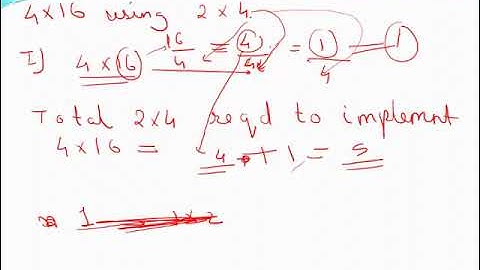 4x16 using 2x4.
I) 4x16 16/4 = 4/4 = 1/4 = 1
Total 2x4 reqd to implemnt
4x16 = 4 + 1 = 5
1